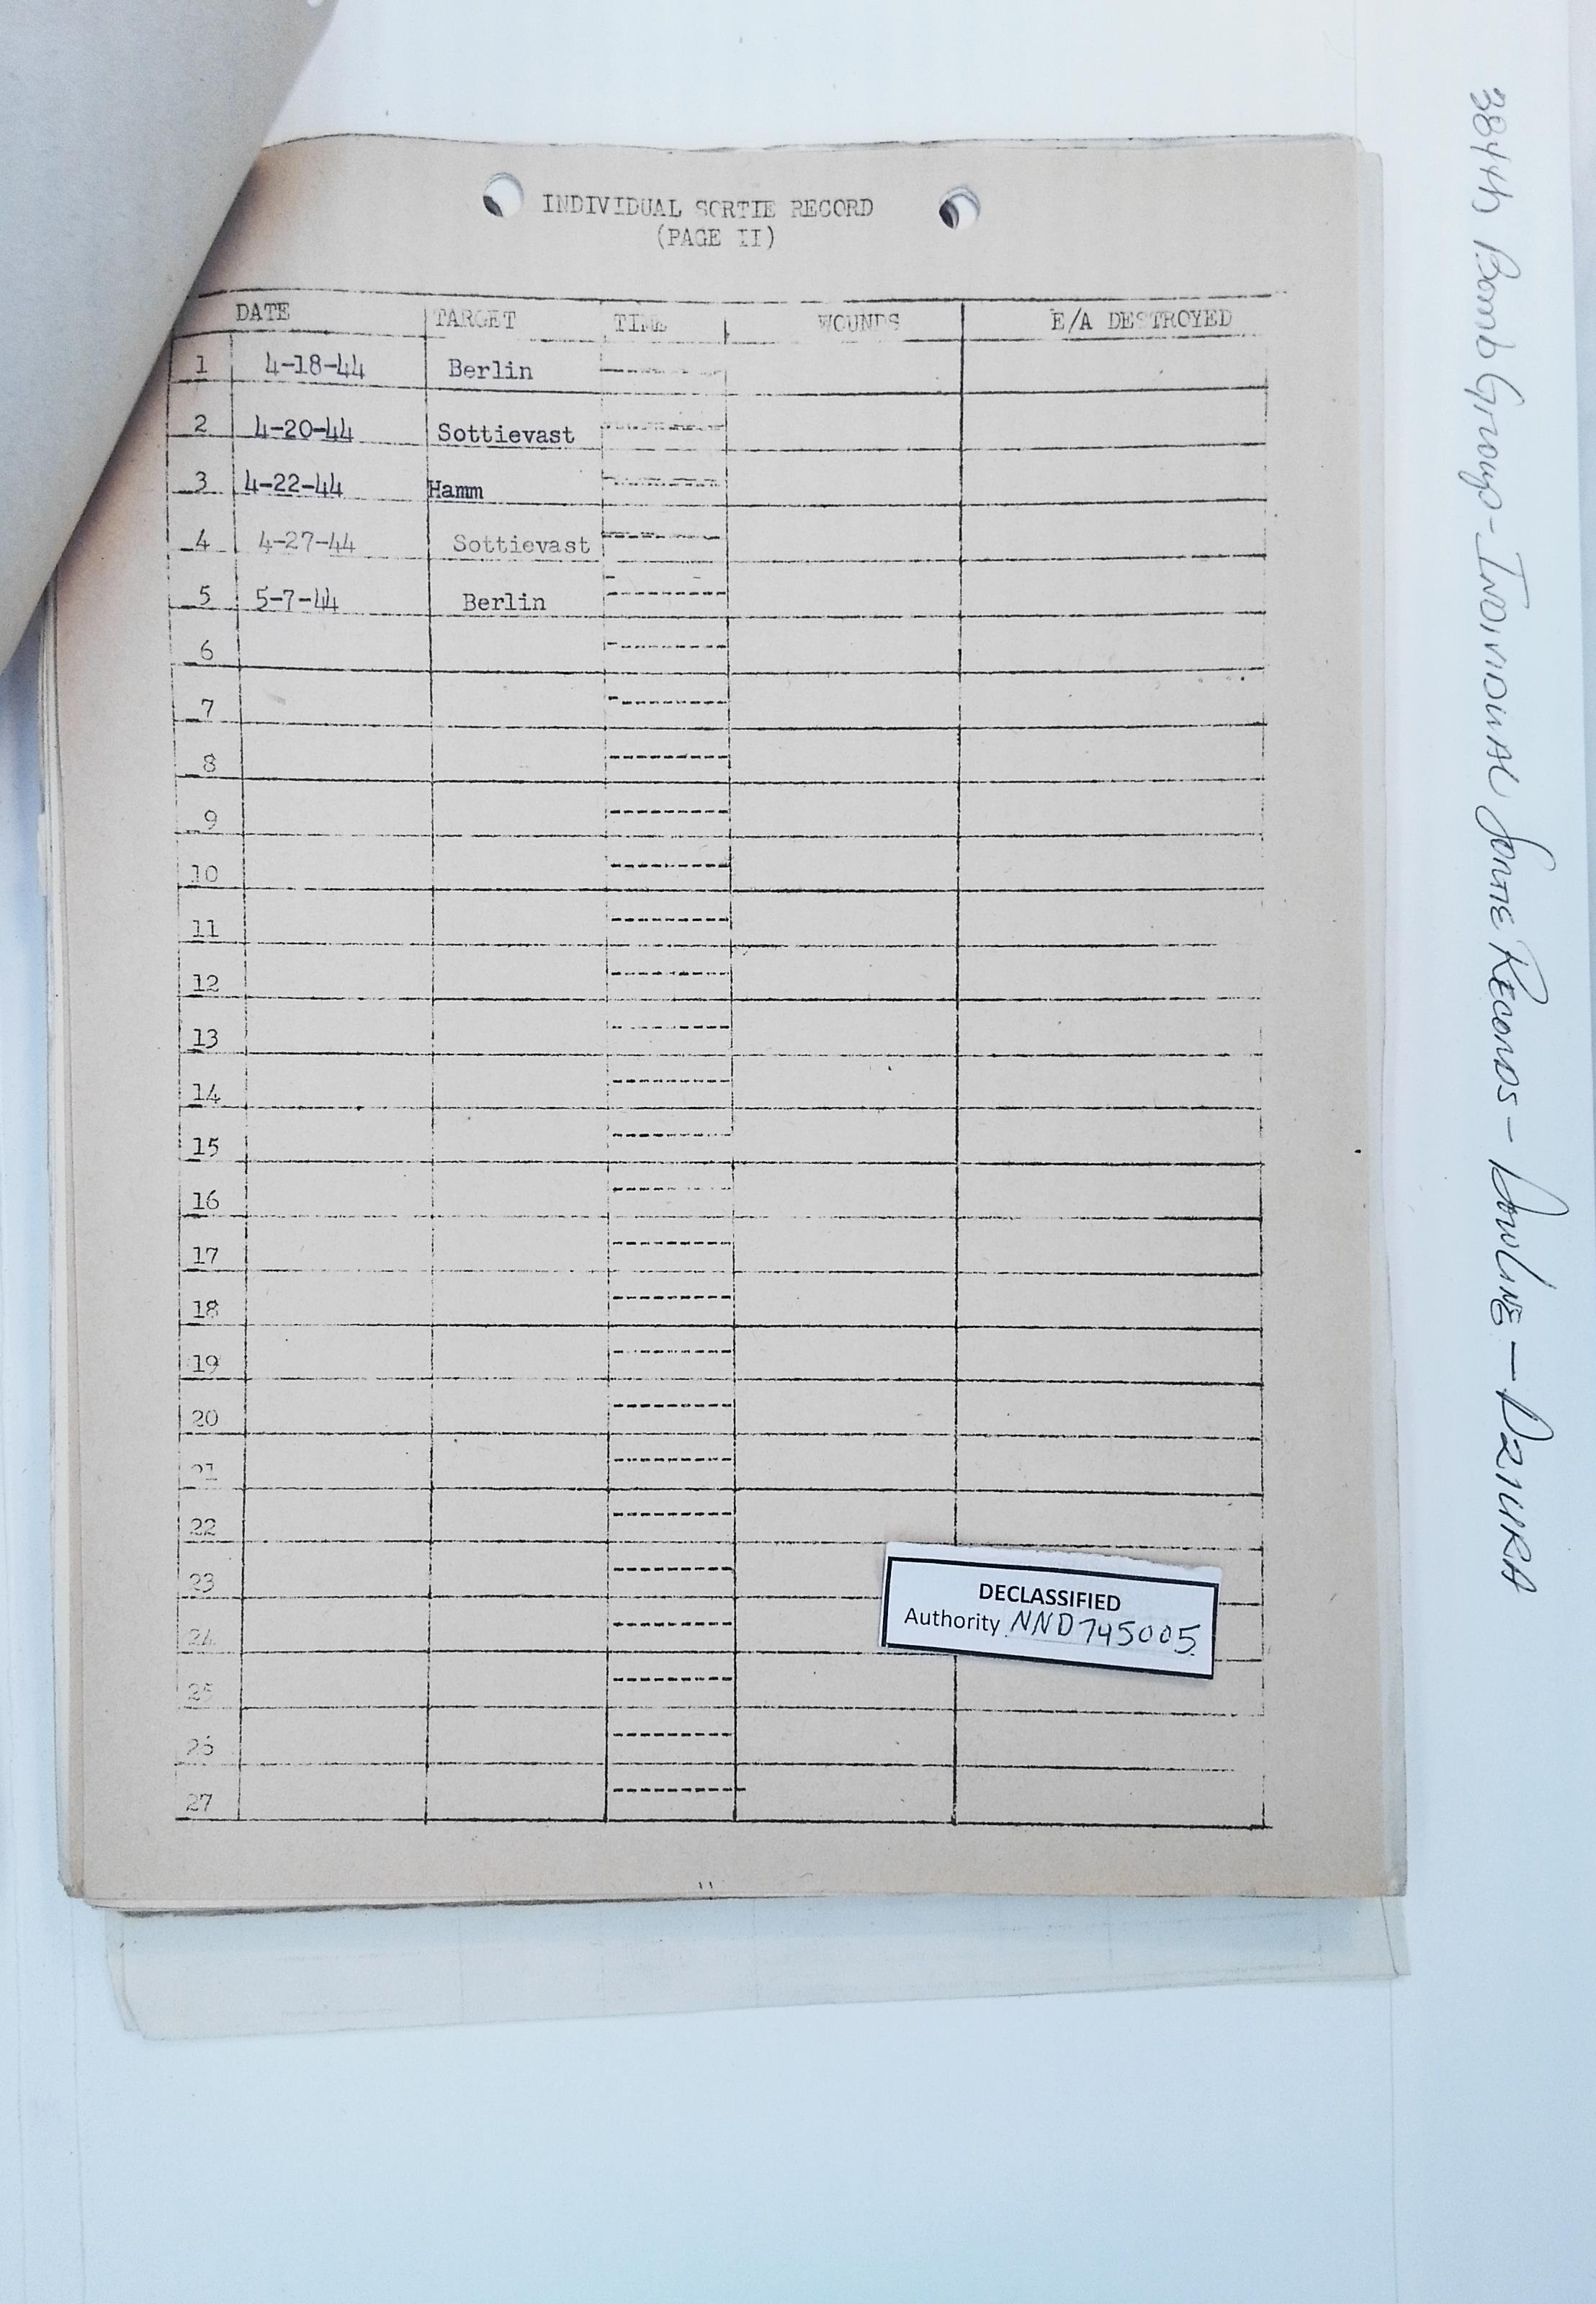 INDIVIDUAL SORTIE RECORD
(PAGE II)
DATE TARGET TIME WOUNDS E/A DESTROYED
1 4-18-44 Berlin
2 4-20-44 Sottievast
3 4-22-44 Hamm
4 4-27-44 Sottievast
5 5-7-44 Berlin
6
7
8
9
10
11
12
13
14
15
16
17
18
19
20
21
22
23
24
25
26
27
DECLASSIFIED
Authority NND745005
384th Bomb Group - Individual Sortie Records - Dowling - Dziura